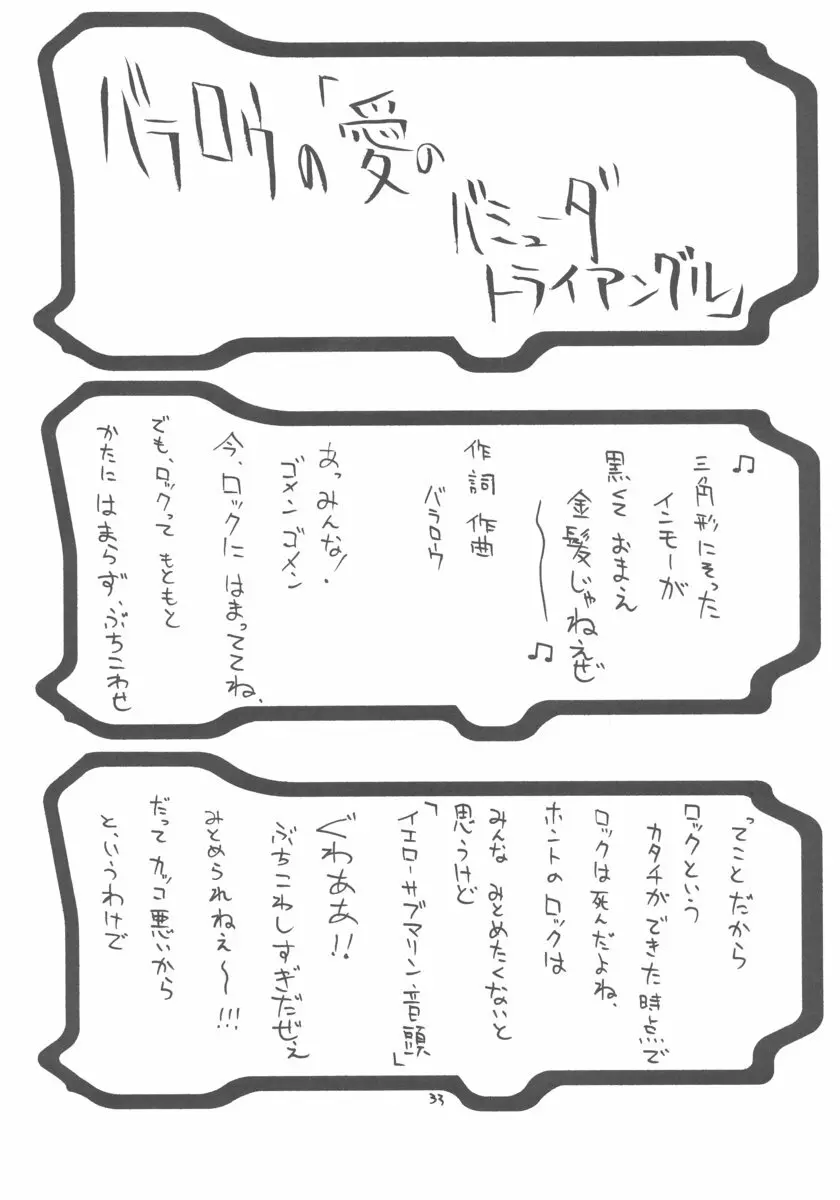 バラロウの「愛の
バミューダ
トライアングル」
♫三角形にそった
インモーが
黒くて おまえ
金髪じゃねえぜ〜♫
作詞 作曲
バラロウ
あっ みんな!
ゴメン ゴメン
今、ロックに はまっててね、
でも、ロックって もともと
かたに はまらず、ぶちこわせ
ってことだから
ロックという
カタチができた時点で
ロックは死んだよね、
ホントのロックは
みんな みとめたくないと
思うけど
「イエローサブマリン音頭」
ぐわああ!!
ぶちこわしすぎだぜぇ
みとめられねぇ〜!!!
だって カッコ悪いから
と、いうわけで
33